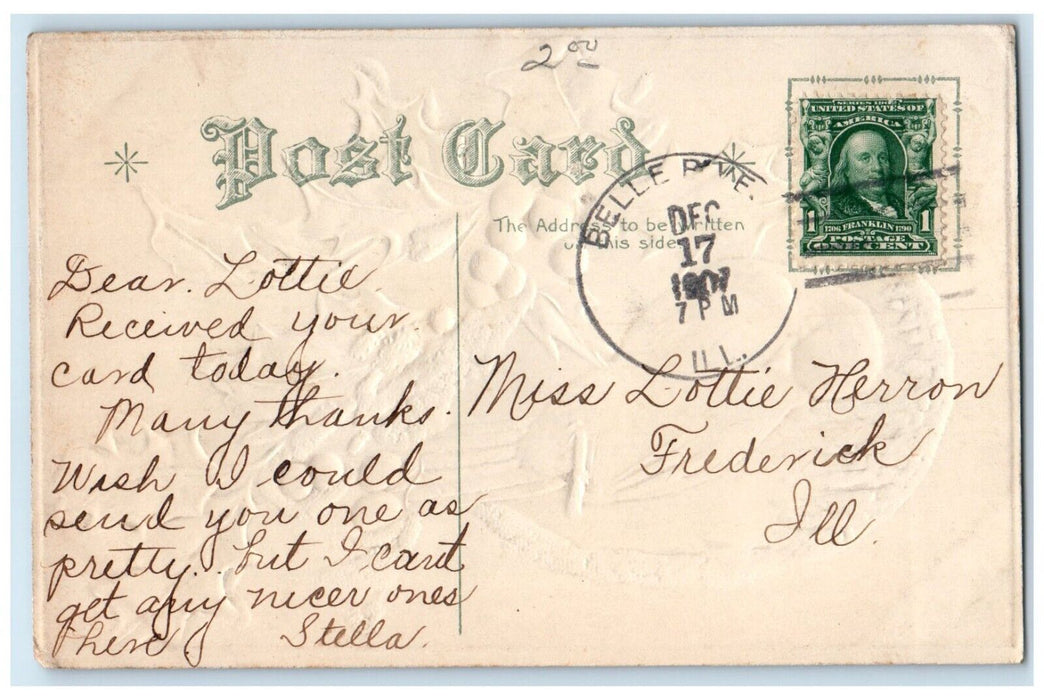 2 00
Post Card
The Address to be written
on this side
BELLE RIVE,
DEC
17
1907
7 PM
ILL.
SERIES 1902
UNITED STATES OF
AMERICA
1 1
1706 FRANKLIN 1790
POSTAGE
ONE CENT
Dear. Lottie.
Received your.
card today.
Many thanks.
Wish I could
send you one as
pretty. but I cant
get any nicer ones
here. Stella.
Miss Lottie Herron
Frederick
Ill.